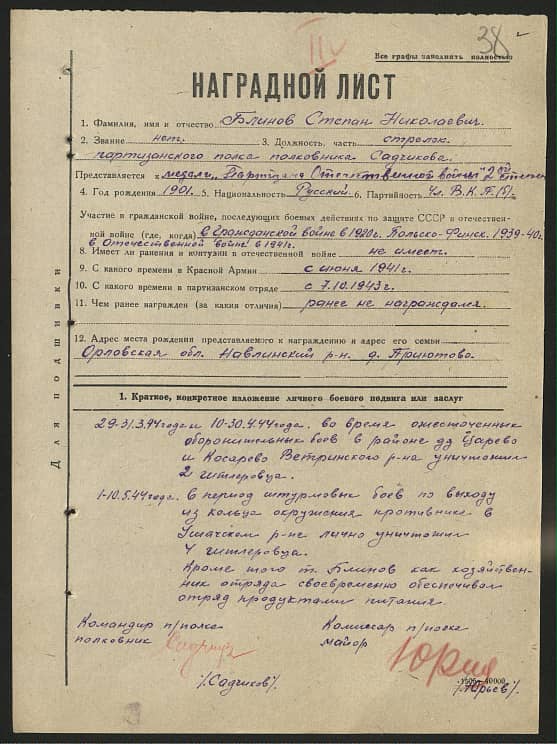 38
II
Все графы заполнять полностью
НАГРАДНОЙ ЛИСТ
1. Фамилия, имя и отчество Блинов Степан Николаевич.
2. Звание нет. 3. Должность, часть стрелок
партизанского полка полковника Садчикова.
Представляется к медаль "Партизана Отечественной войны" 2ой степени
4. Год рождения 1901. 5. Национальность Русский 6. Партийность Чл. В.К.П.(б).
Участие в гражданской войне, последующих боевых действиях по защите СССР и отечествен-
ной войне (где, когда) в Гражданской войне в 1920г. Польско-Финск. 1939-40г.
в Отечественной войне в 1941г.
8. Имеет ли ранения и контузии в отечественной войне не имеет.
9. С какого времени в Красной Армии с июня 1941г.
10. С какого времени в партизанском отряде с 7.10.1943г.
11. Чем ранее награжден (за какия отличия) ранее не награждался.
12. Адрес места рождения представляемого к награждению и адрес его семьи
Орловская обл. Навлинский р-н. д. Приютово.
Для подшивки
1. Краткое, конкретное изложение личного боевого подвига или заслуг
29-31.3.44 года и 10-30.4.44 года. во время ожесточенных
оборонительных боев в районе дд Царево
и Косарево Ветринского р-на уничтожил
2 гитлеровца.
1-10.5.44 года. в период штурмовых боев по выходу
из кольца окружения противника в
Ушачском р-не лично уничтожил
4 гитлеровца.
Кроме того т. Блинов как хозяйствен-
ник отряда своевременно обеспечивал
отряд продуктами питания.
Командир п/полка Комиссар п/полка
полковник Садчик майор Юрьев
/Садчиков/. /Юрьев/.